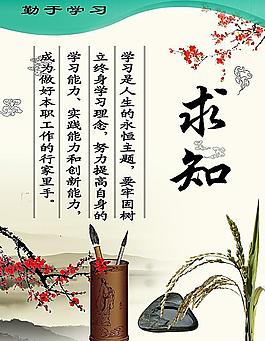 勤于学习
求知
学习是人生的永恒主题，要牢固树
立终身学习理念，努力提高自身的
学习能力、实践能力和创新能力，
成为做好本职工作的行家里手。